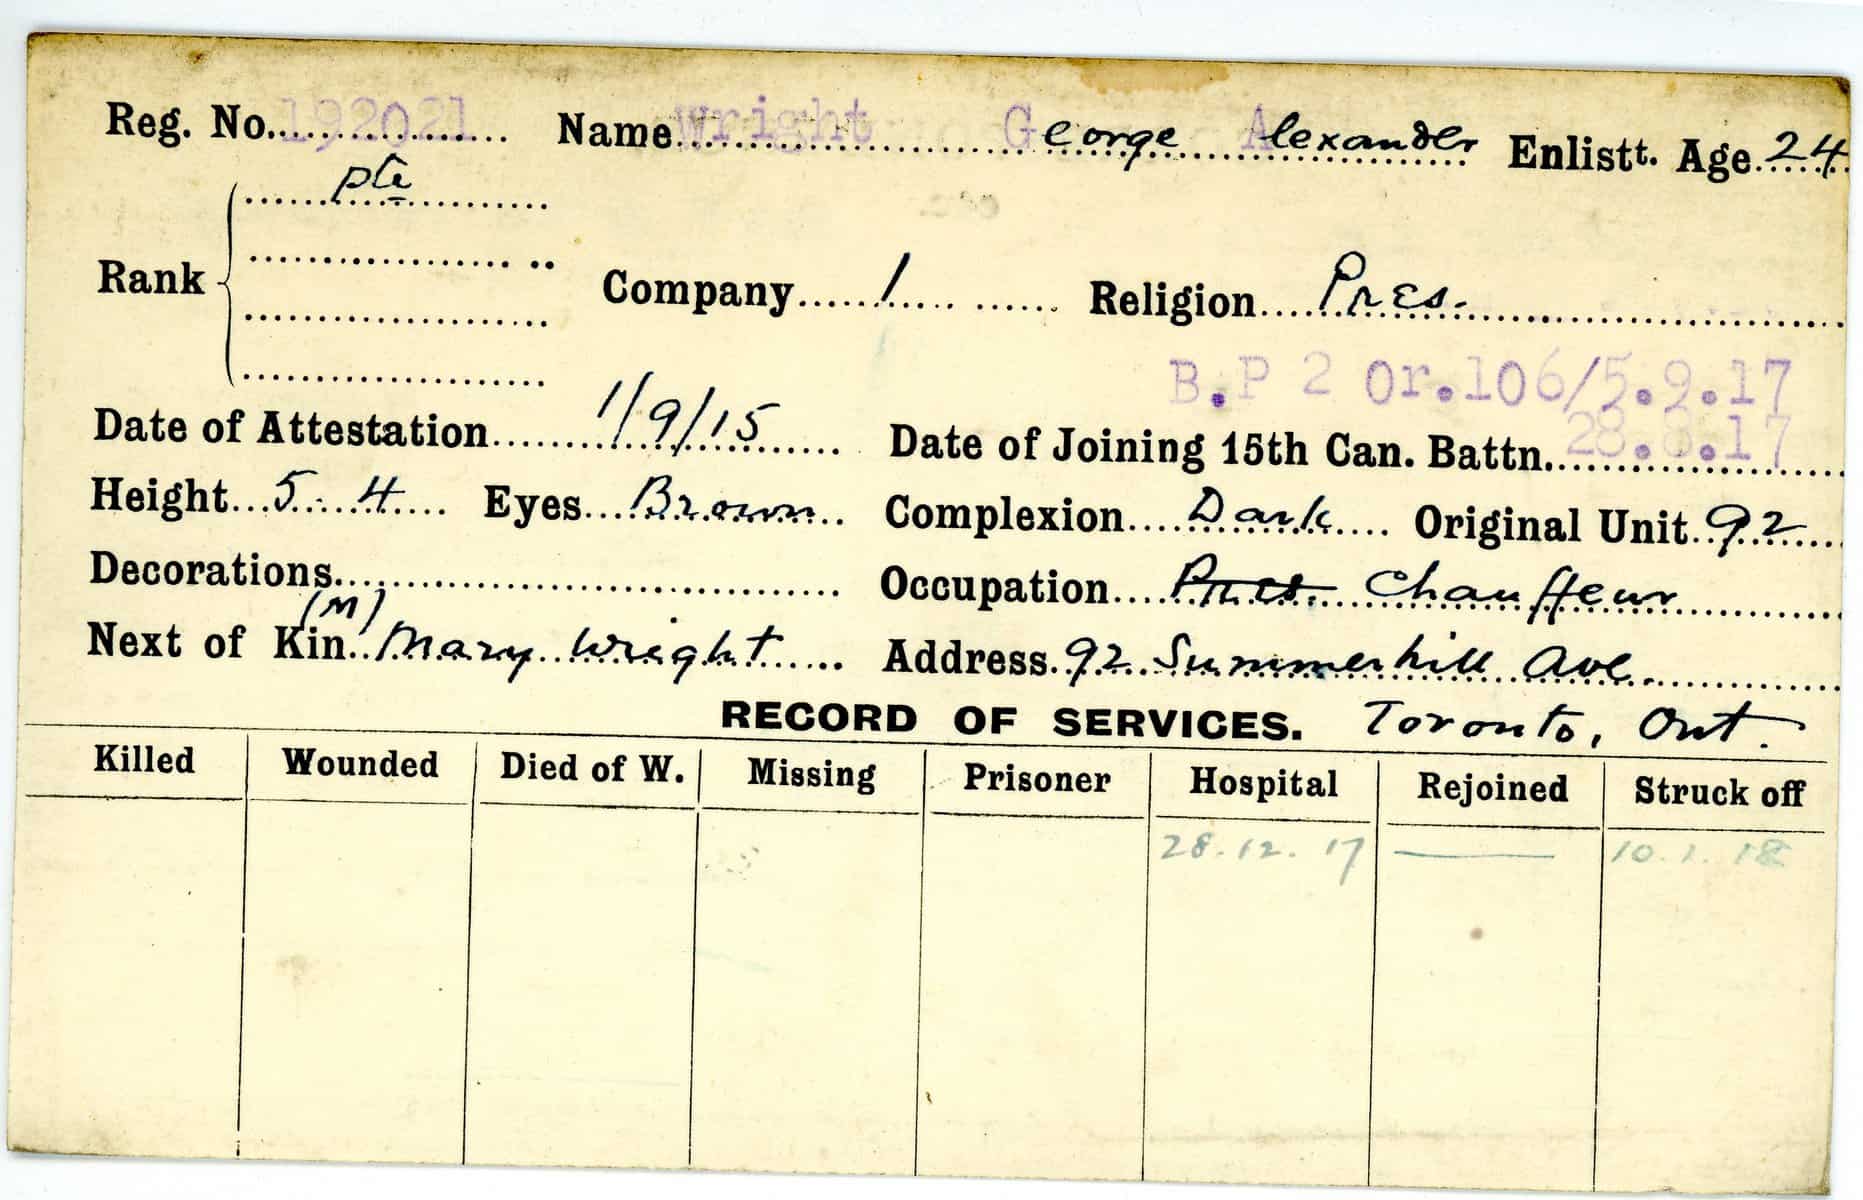 Reg. No. 192021 Name Wright George Alexander Enlistt. Age 24
pte
Rank Company 1 Religion Pres.
B.P 2 Or.106/5.9.17
Date of Attestation 1/9/15 Date of Joining 15th Can. Battn. 28.8.17
Height 5. 4 Eyes Brown Complexion Dark Original Unit 92
Decorations Occupation Pres. Chauffeur
(M)
Next of Kin Mary Wright Address 92 Summerhill Ave.
RECORD OF SERVICES. Toronto, Ont.
Killed Wounded Died of W. Missing Prisoner Hospital Rejoined Struck off
28.12.17 — 10.1.18